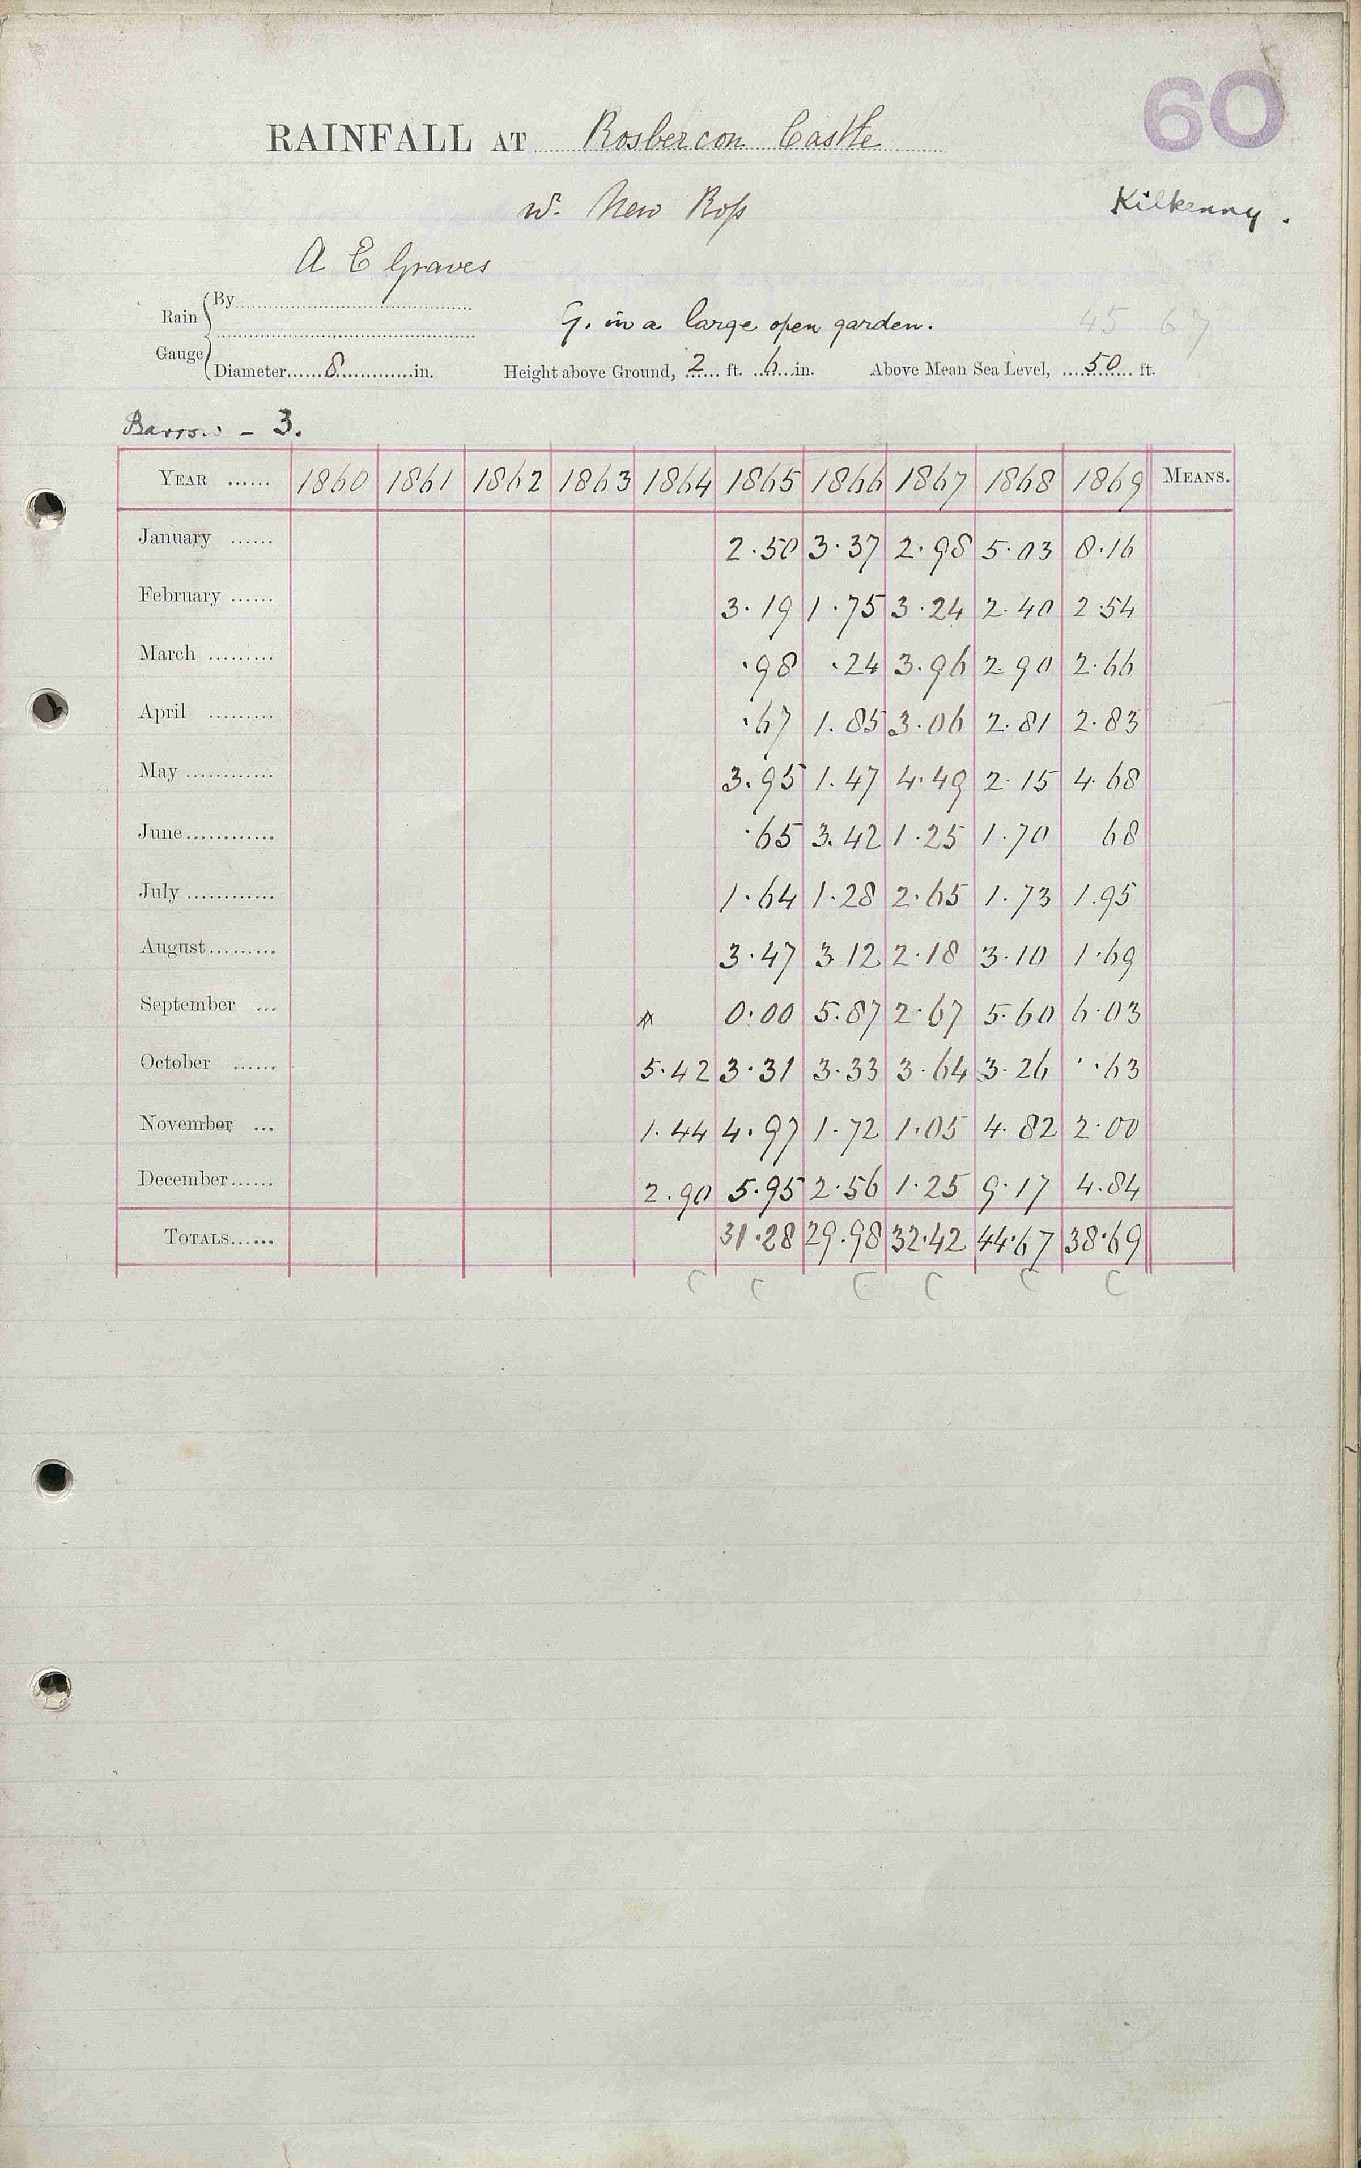 60
RAINFALL AT Rosbercon Castle
Nr. New Ross
Kilkenny.
A E Graves
Rain Gauge { By
G. in a large open garden. 45 67
Diameter 8 in. Height above Ground, 2 ft. 6 in. Above Mean Sea Level, 50 ft.
Barrow - 3.
YEAR ...... 1860 1861 1862 1863 1864 1865 1866 1867 1868 1869 MEANS.
January ...... 2.50 3.37 2.98 5.03 8.16
February ...... 3.19 1.75 3.24 2.40 2.54
March ......... .98 .24 3.96 2.90 2.66
April ......... .67 1.85 3.06 2.81 2.83
May ............ 3.95 1.47 4.49 2.15 4.68
June ............ .65 3.42 1.25 1.70 68
July ............ 1.64 1.28 2.65 1.73 1.95
August ......... 3.47 3.12 2.18 3.10 1.69
September ... 0.00 5.87 2.67 5.60 6.03
October ...... 5.42 3.31 3.33 3.64 3.26 .63
November ... 1.44 4.97 1.72 1.05 4.82 2.00
December ...... 2.90 5.95 2.56 1.25 9.17 4.84
TOTALS ...... 31.28 29.98 32.42 44.67 38.69
C C C C C C